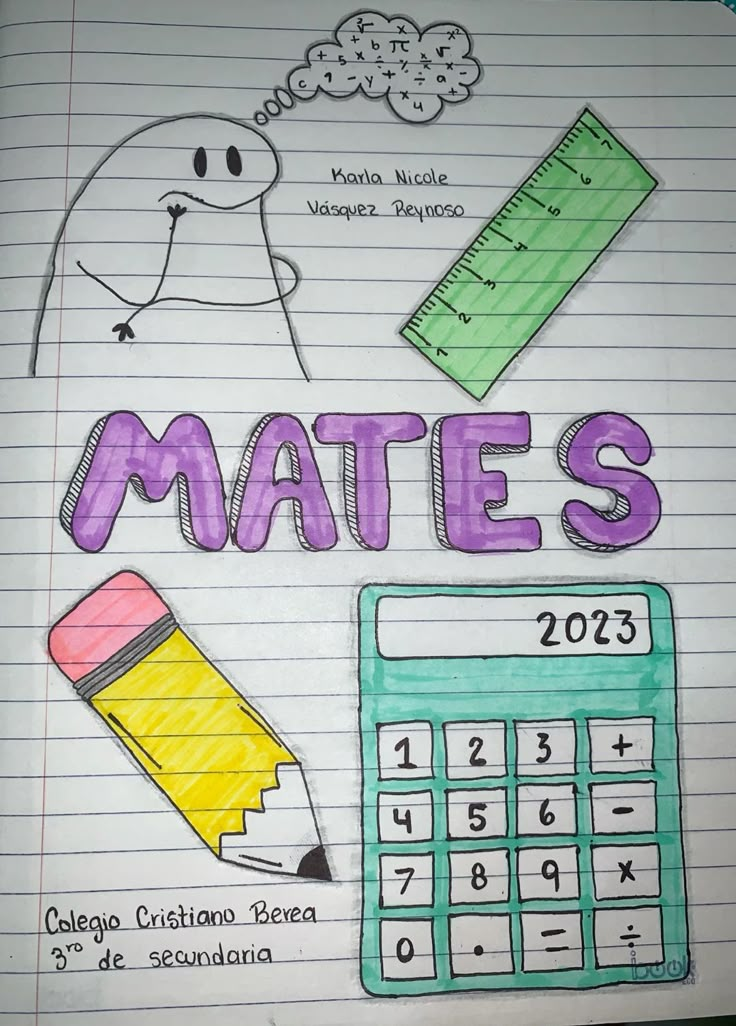 ³√ x x²
+ b π √
+ 5 x ÷ % x/x x -
c 1 - y + ÷ a +
x 4
Karla Nicole
Vásquez Reynoso
1 2 3 4 5 6 7
MATES
2023
1 2 3 +
4 5 6 -
7 8 9 x
0 . = ÷
Colegio Cristiano Berea
3ro de secundaria